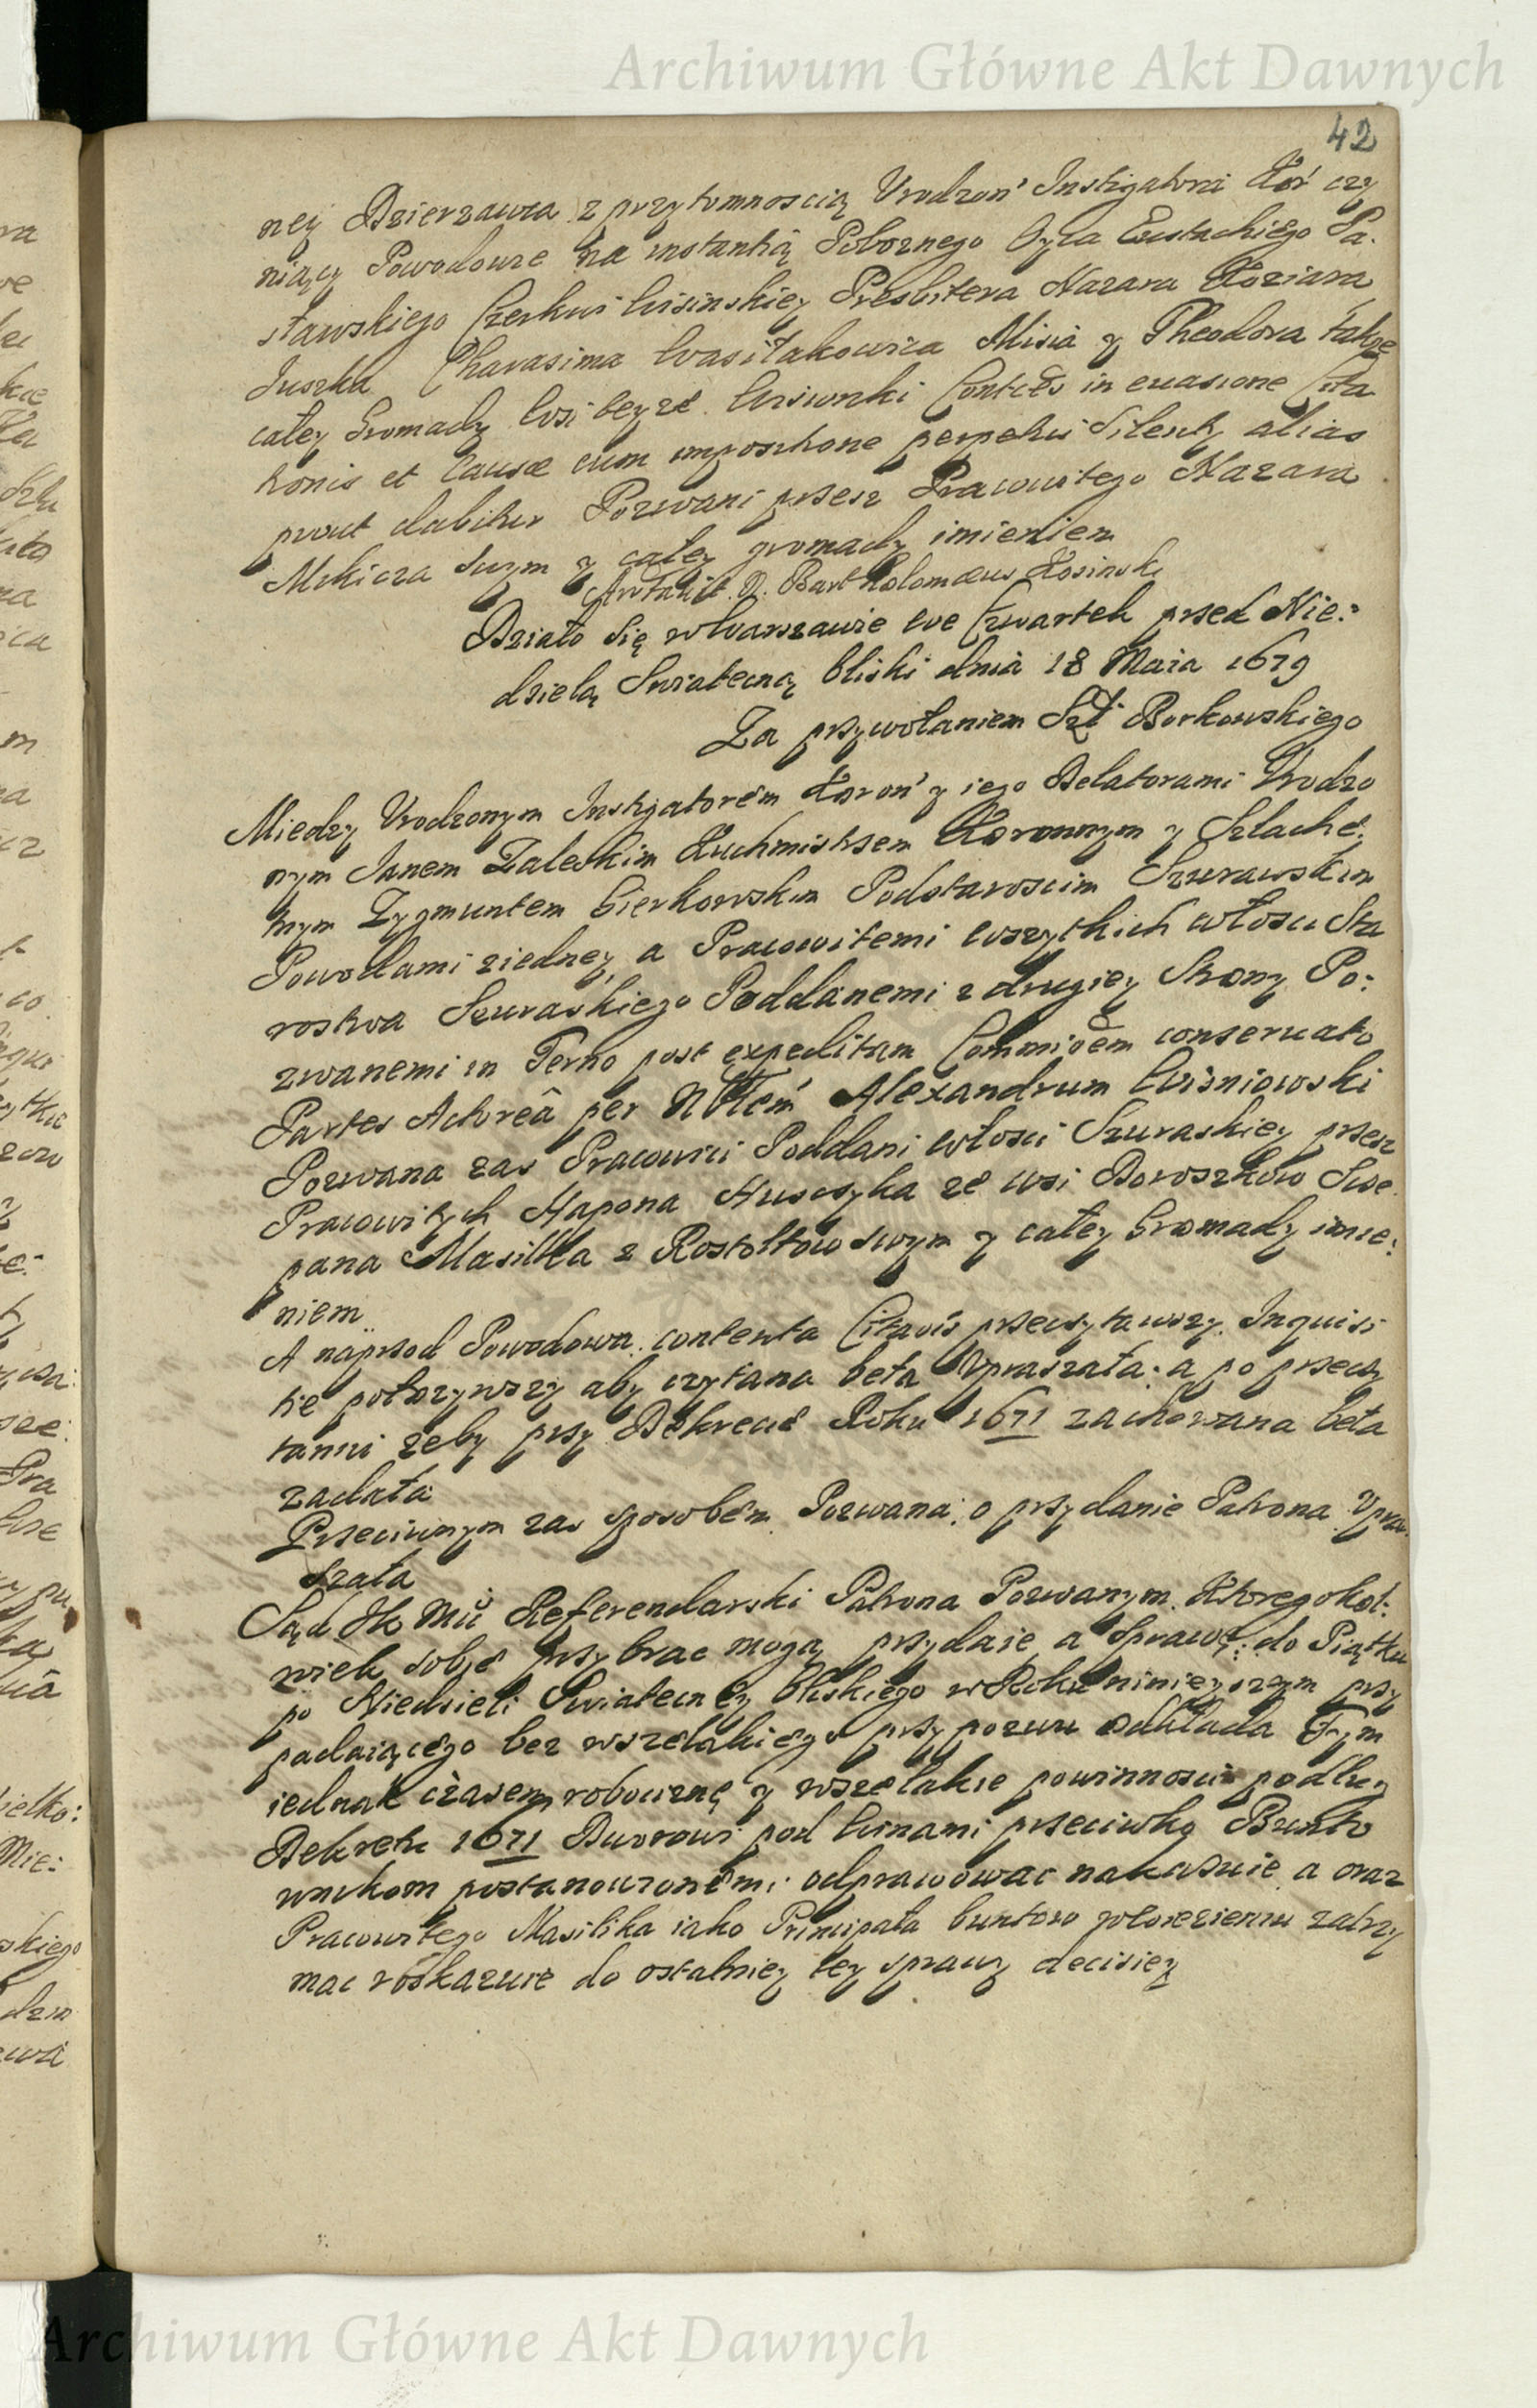 Archiwum Główne Akt Dawnych
42
ney Dzierzawca z przytomnoscią Vrodzon' Instigatora Kor' czy
niący Powodowie na instantią Pobornego Oyca Eustachiego Sa.
sławskiego Czerkwi Presbitera Nazara Koziara
Juszka Charasima Wasilakowica Misia y Theodora także
całey Gromady Wsi teyze Contctes in euasione Cita
tionis et Causæ cum impositione perpetui Silentÿ alias
prout dabitur Pozwani przesz Pracowitego Nazara
Mikicza swym y całey gromady imieniem
D. Bartholomæus Kosinski
Działo się w Warszawie we Czwartek przed Nie:
dzielą Swiateczną bliski dnia 18 Maia 1679
Za przywołaniem Szl Borkowskiego
Miedzy Vrodzonym Instigatorem Koron' y iego Delatorami Vrodzo
nym Janem Zaleskim Kuchmistrzem Koronnym y Szlache:
tnym Zygmuntem Gierkowskim Podstaroscim Szurawskim
Powodami ziedney, a Pracowitemi wszytkich włosci Sta
rostwa Szuraskiego Poddanemi z drugiey Strony Po:
zwanemi in Termo post expeditam Commissem conseruato
Partes Actorea per Nblem Alexandrum Wisniowski
Pozwana zas Pracowici Poddani włosci Szuraskiey przesz
Pracowitych Hapona Husczyka ze wsi Doroszkow Scze
pana Masilika z Rostołtow swym y całey Gromady imie:
niem
A naprzod Powodowa contenta Citaois przeczytawszy Inquisi
tie połozywszy aby czytana beła Vpraszała; a po przeczy
taniu zeby przy Dekrecie Roku 1671 zachowana beła
ządała
Przeciwnym zas sposobem Pozwana o przydanie Patrona Vpra
szała
Sąd JK Mci Referendarski Patrona Pozwanym Ktoregokol:
wiek sobie przybrac mogą przydaie a Sprawę do Piątku
po Niedzieli Swiateczney bliskiego w Roku ninieyszym przy
padaiącego bez wszelakiego przypozwu odkłada Tym
iednak czasem robociznę y wszelakie powinnosci podług
Dekretu 1671 Dworowi pod Winami przeciwko Bunto
wnikom postanowionemi odprawować nakazuie a oraz
Pracowitego Masilika iako Principała buntow do więzieniu zatrzy
mac roskazuie do ostatniey tey sprawy decisiey
Archiwum Główne Akt Dawnych